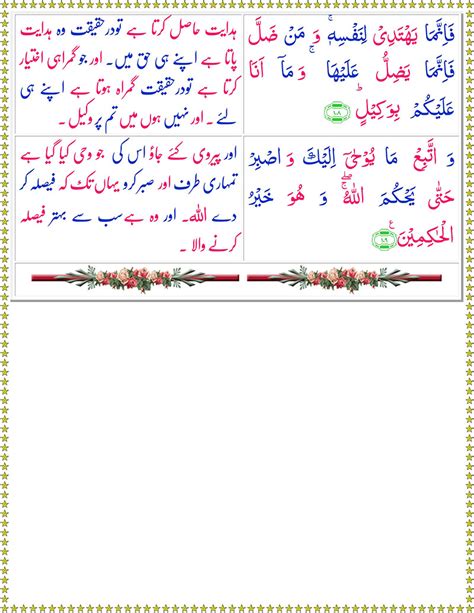 فَاِنَّمَا يَهْتَدِىْ لِنَفْسِهٖ‌ۚ وَ مَنْ ضَلَّ
فَاِنَّمَا يَضِلُّ عَلَيْهَا‌ۚ وَ مَاۤ اَنَا
عَلَيْكُمْ بِوَكِيْلٍؕ‏ ﴿۱۰۸﴾
ہدایت حاصل کرتا ہے تودرحقیقت وہ ہدایت
پاتا ہے اپنے ہی حق میں۔ اور جو گمراہی اختیار
کرتا ہے تودرحقیقت گمراہ ہوتا ہے اپنے ہی
لئے ۔ اور نہیں ہوں میں تم پر وکیل۔
وَ اتَّبِعْ مَا يُوْحٰۤى اِلَيْكَ وَ اصْبِرْ
حَتّٰى يَحْكُمَ اللّٰهُ ۖۚ وَ هُوَ خَيْرُ
الْحٰكِمِيْنَ ﴿۱۰۹﴾ ع
اور پیروی کئے جاؤ اس کی جو وحی کیا گیا ہے
تمہاری طرف اور صبر کرو یہاں تک کہ فیصلہ کر
دے اللہ۔ اور وہ ہے سب سے بہتر فیصلہ
کرنے والا ۔